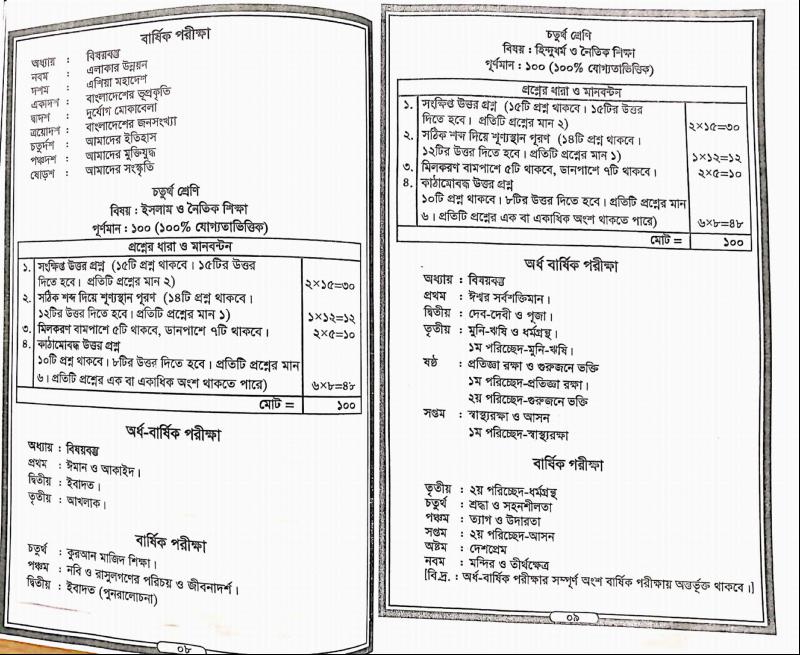 বার্ষিক পরীক্ষা
অধ্যায় : বিষয়বস্তু
নবম : এলাকার উন্নয়ন
দশম : এশিয়া মহাদেশ
একাদশ : বাংলাদেশের ভূপ্রকৃতি
দ্বাদশ : দুর্যোগ মোকাবেলা
ত্রয়োদশ : বাংলাদেশের জনসংখ্যা
চতুর্দশ : আমাদের ইতিহাস
পঞ্চদশ : আমাদের মুক্তিযুদ্ধ
ষোড়শ : আমাদের সংস্কৃতি
চতুর্থ শ্রেণি
বিষয় : ইসলাম ও নৈতিক শিক্ষা
পূর্ণমান : ১০০ (১০০% যোগ্যতাভিত্তিক)
প্রশ্নের ধারা ও মানবন্টন
১. সংক্ষিপ্ত উত্তর প্রশ্ন (১৫টি প্রশ্ন থাকবে। ১৫টির উত্তর
দিতে হবে। প্রতিটি প্রশ্নের মান ২) ২×১৫=৩০
২. সঠিক শব্দ দিয়ে শূণ্যস্থান পূরণ (১৪টি প্রশ্ন থাকবে।
১২টির উত্তর দিতে হবে। প্রতিটি প্রশ্নের মান ১) ১×১২=১২
৩. মিলকরণ বামপাশে ৫টি থাকবে, ডানপাশে ৭টি থাকবে। ২×৫=১০
৪. কাঠামোবদ্ধ উত্তর প্রশ্ন
১০টি প্রশ্ন থাকবে। ৮টির উত্তর দিতে হবে। প্রতিটি প্রশ্নের মান
৬। প্রতিটি প্রশ্নের এক বা একাধিক অংশ থাকতে পারে) ৬×৮=৪৮
মোট = ১০০
অর্ধ-বার্ষিক পরীক্ষা
অধ্যায় : বিষয়বস্তু
প্রথম : ঈমান ও আকাইদ।
দ্বিতীয় : ইবাদত।
তৃতীয় : আখলাক।
বার্ষিক পরীক্ষা
চতুর্থ : কুরআন মাজিদ শিক্ষা।
পঞ্চম : নবি ও রাসুলগণের পরিচয় ও জীবনাদর্শ।
দ্বিতীয় : ইবাদত (পুনরালোচনা)
০৮
চতুর্থ শ্রেণি
বিষয় : হিন্দুধর্ম ও নৈতিক শিক্ষা
পূর্ণমান : ১০০ (১০০% যোগ্যতাভিত্তিক)
প্রশ্নের ধারা ও মানবন্টন
১. সংক্ষিপ্ত উত্তর প্রশ্ন (১৫টি প্রশ্ন থাকবে। ১৫টির উত্তর
দিতে হবে। প্রতিটি প্রশ্নের মান ২) ২×১৫=৩০
২. সঠিক শব্দ দিয়ে শূণ্যস্থান পূরণ (১৪টি প্রশ্ন থাকবে।
১২টির উত্তর দিতে হবে। প্রতিটি প্রশ্নের মান ১) ১×১২=১২
৩. মিলকরণ বামপাশে ৫টি থাকবে, ডানপাশে ৭টি থাকবে। ২×৫=১০
৪. কাঠামোবদ্ধ উত্তর প্রশ্ন
১০টি প্রশ্ন থাকবে। ৮টির উত্তর দিতে হবে। প্রতিটি প্রশ্নের মান
৬। প্রতিটি প্রশ্নের এক বা একাধিক অংশ থাকতে পারে) ৬×৮=৪৮
মোট = ১০০
অর্ধ বার্ষিক পরীক্ষা
অধ্যায় : বিষয়বস্তু
প্রথম : ঈশ্বর সর্বশক্তিমান।
দ্বিতীয় : দেব-দেবী ও পূজা।
তৃতীয় : মুনি-ঋষি ও ধর্মগ্রন্থ।
১ম পরিচ্ছেদ-মুনি-ঋষি।
ষষ্ঠ : প্রতিজ্ঞা রক্ষা ও গুরুজনে ভক্তি
১ম পরিচ্ছেদ-প্রতিজ্ঞা রক্ষা।
২য় পরিচ্ছেদ-গুরুজনে ভক্তি
সপ্তম : স্বাস্থ্যরক্ষা ও আসন
১ম পরিচ্ছেদ-স্বাস্থ্যরক্ষা
বার্ষিক পরীক্ষা
তৃতীয় : ২য় পরিচ্ছেদ-ধর্মগ্রন্থ
চতুর্থ : শ্রদ্ধা ও সহনশীলতা
পঞ্চম : ত্যাগ ও উদারতা
সপ্তম : ২য় পরিচ্ছেদ-আসন
অষ্টম : দেশপ্রেম
নবম : মন্দির ও তীর্থক্ষেত্র
[বি.দ্র. : অর্ধ-বার্ষিক পরীক্ষার সম্পূর্ণ অংশ বার্ষিক পরীক্ষায় অন্তর্ভূক্ত থাকবে।]
০৯